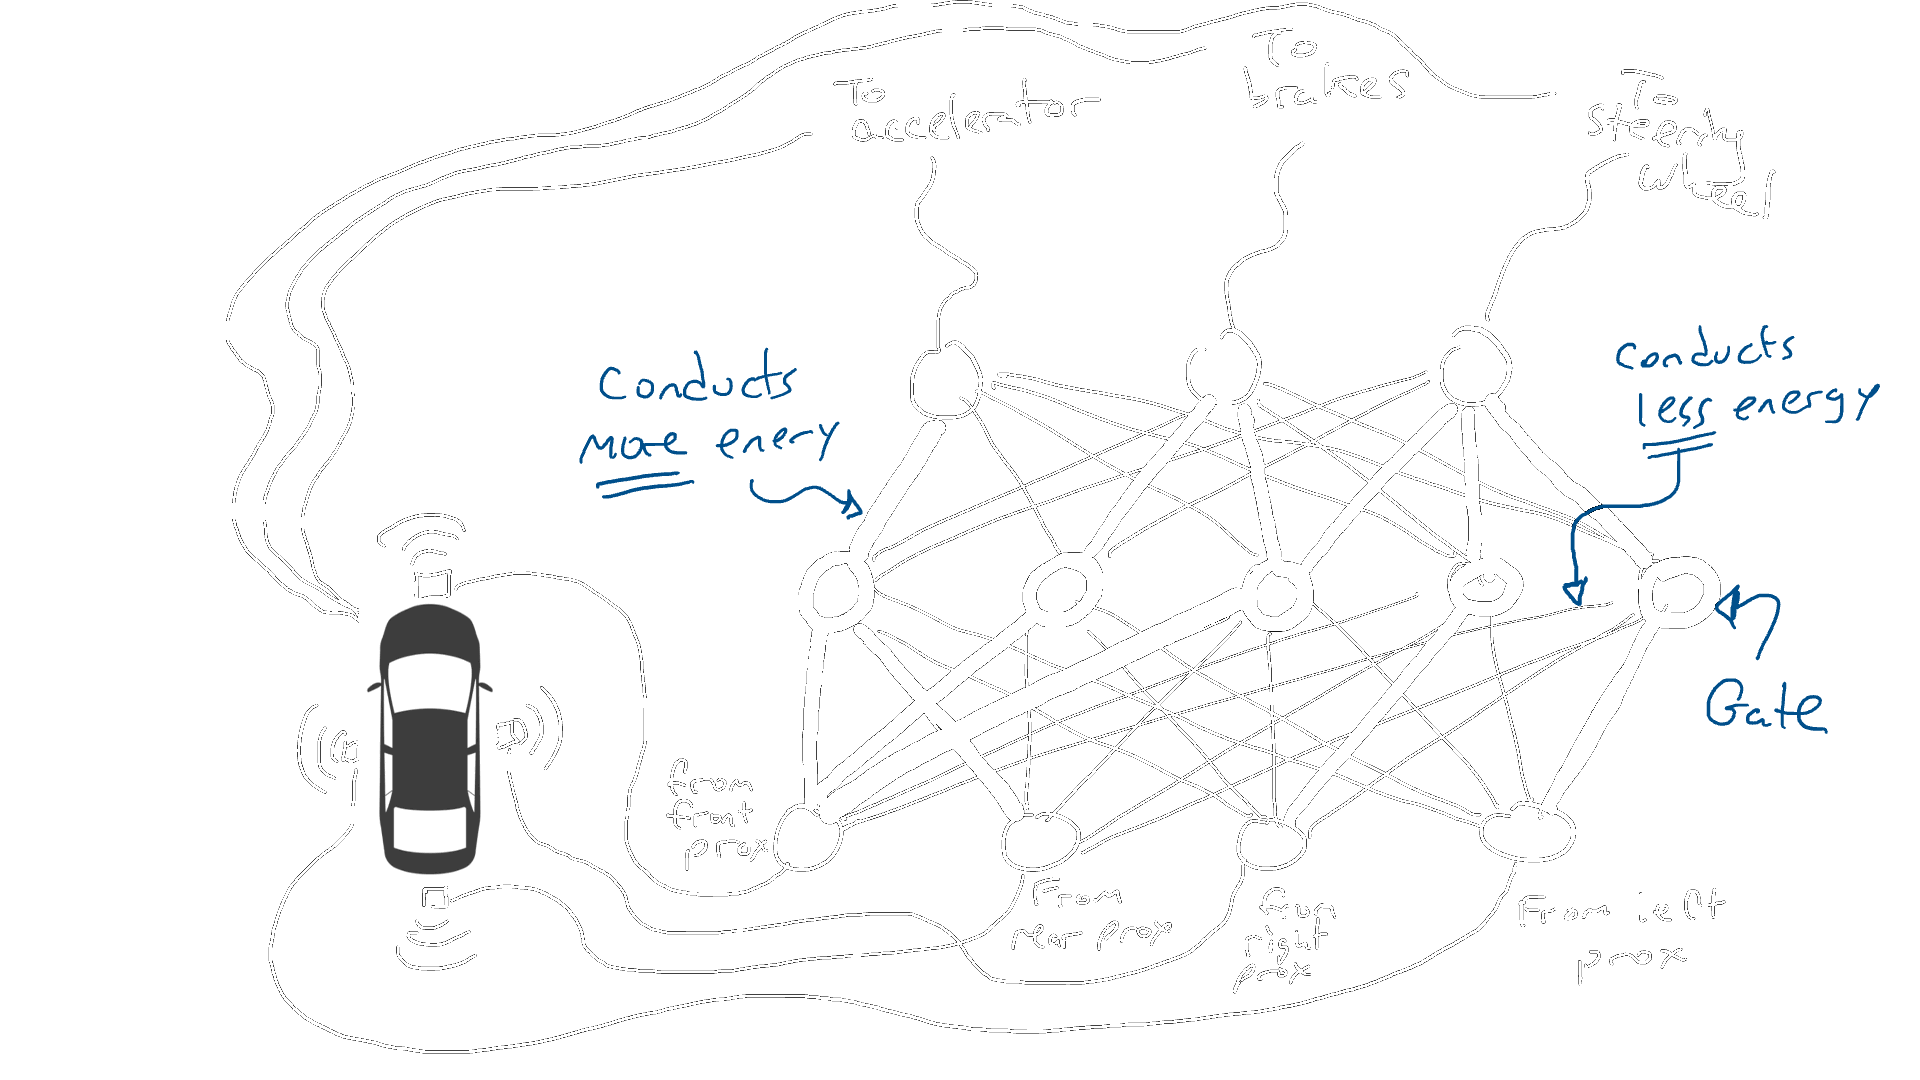 To
accelerator
To
brakes
To
steering
wheel
Conducts
more enery
conducts
less energy
Gate
from
front
prox
From
rear prox
from
right
prox
From left
prox